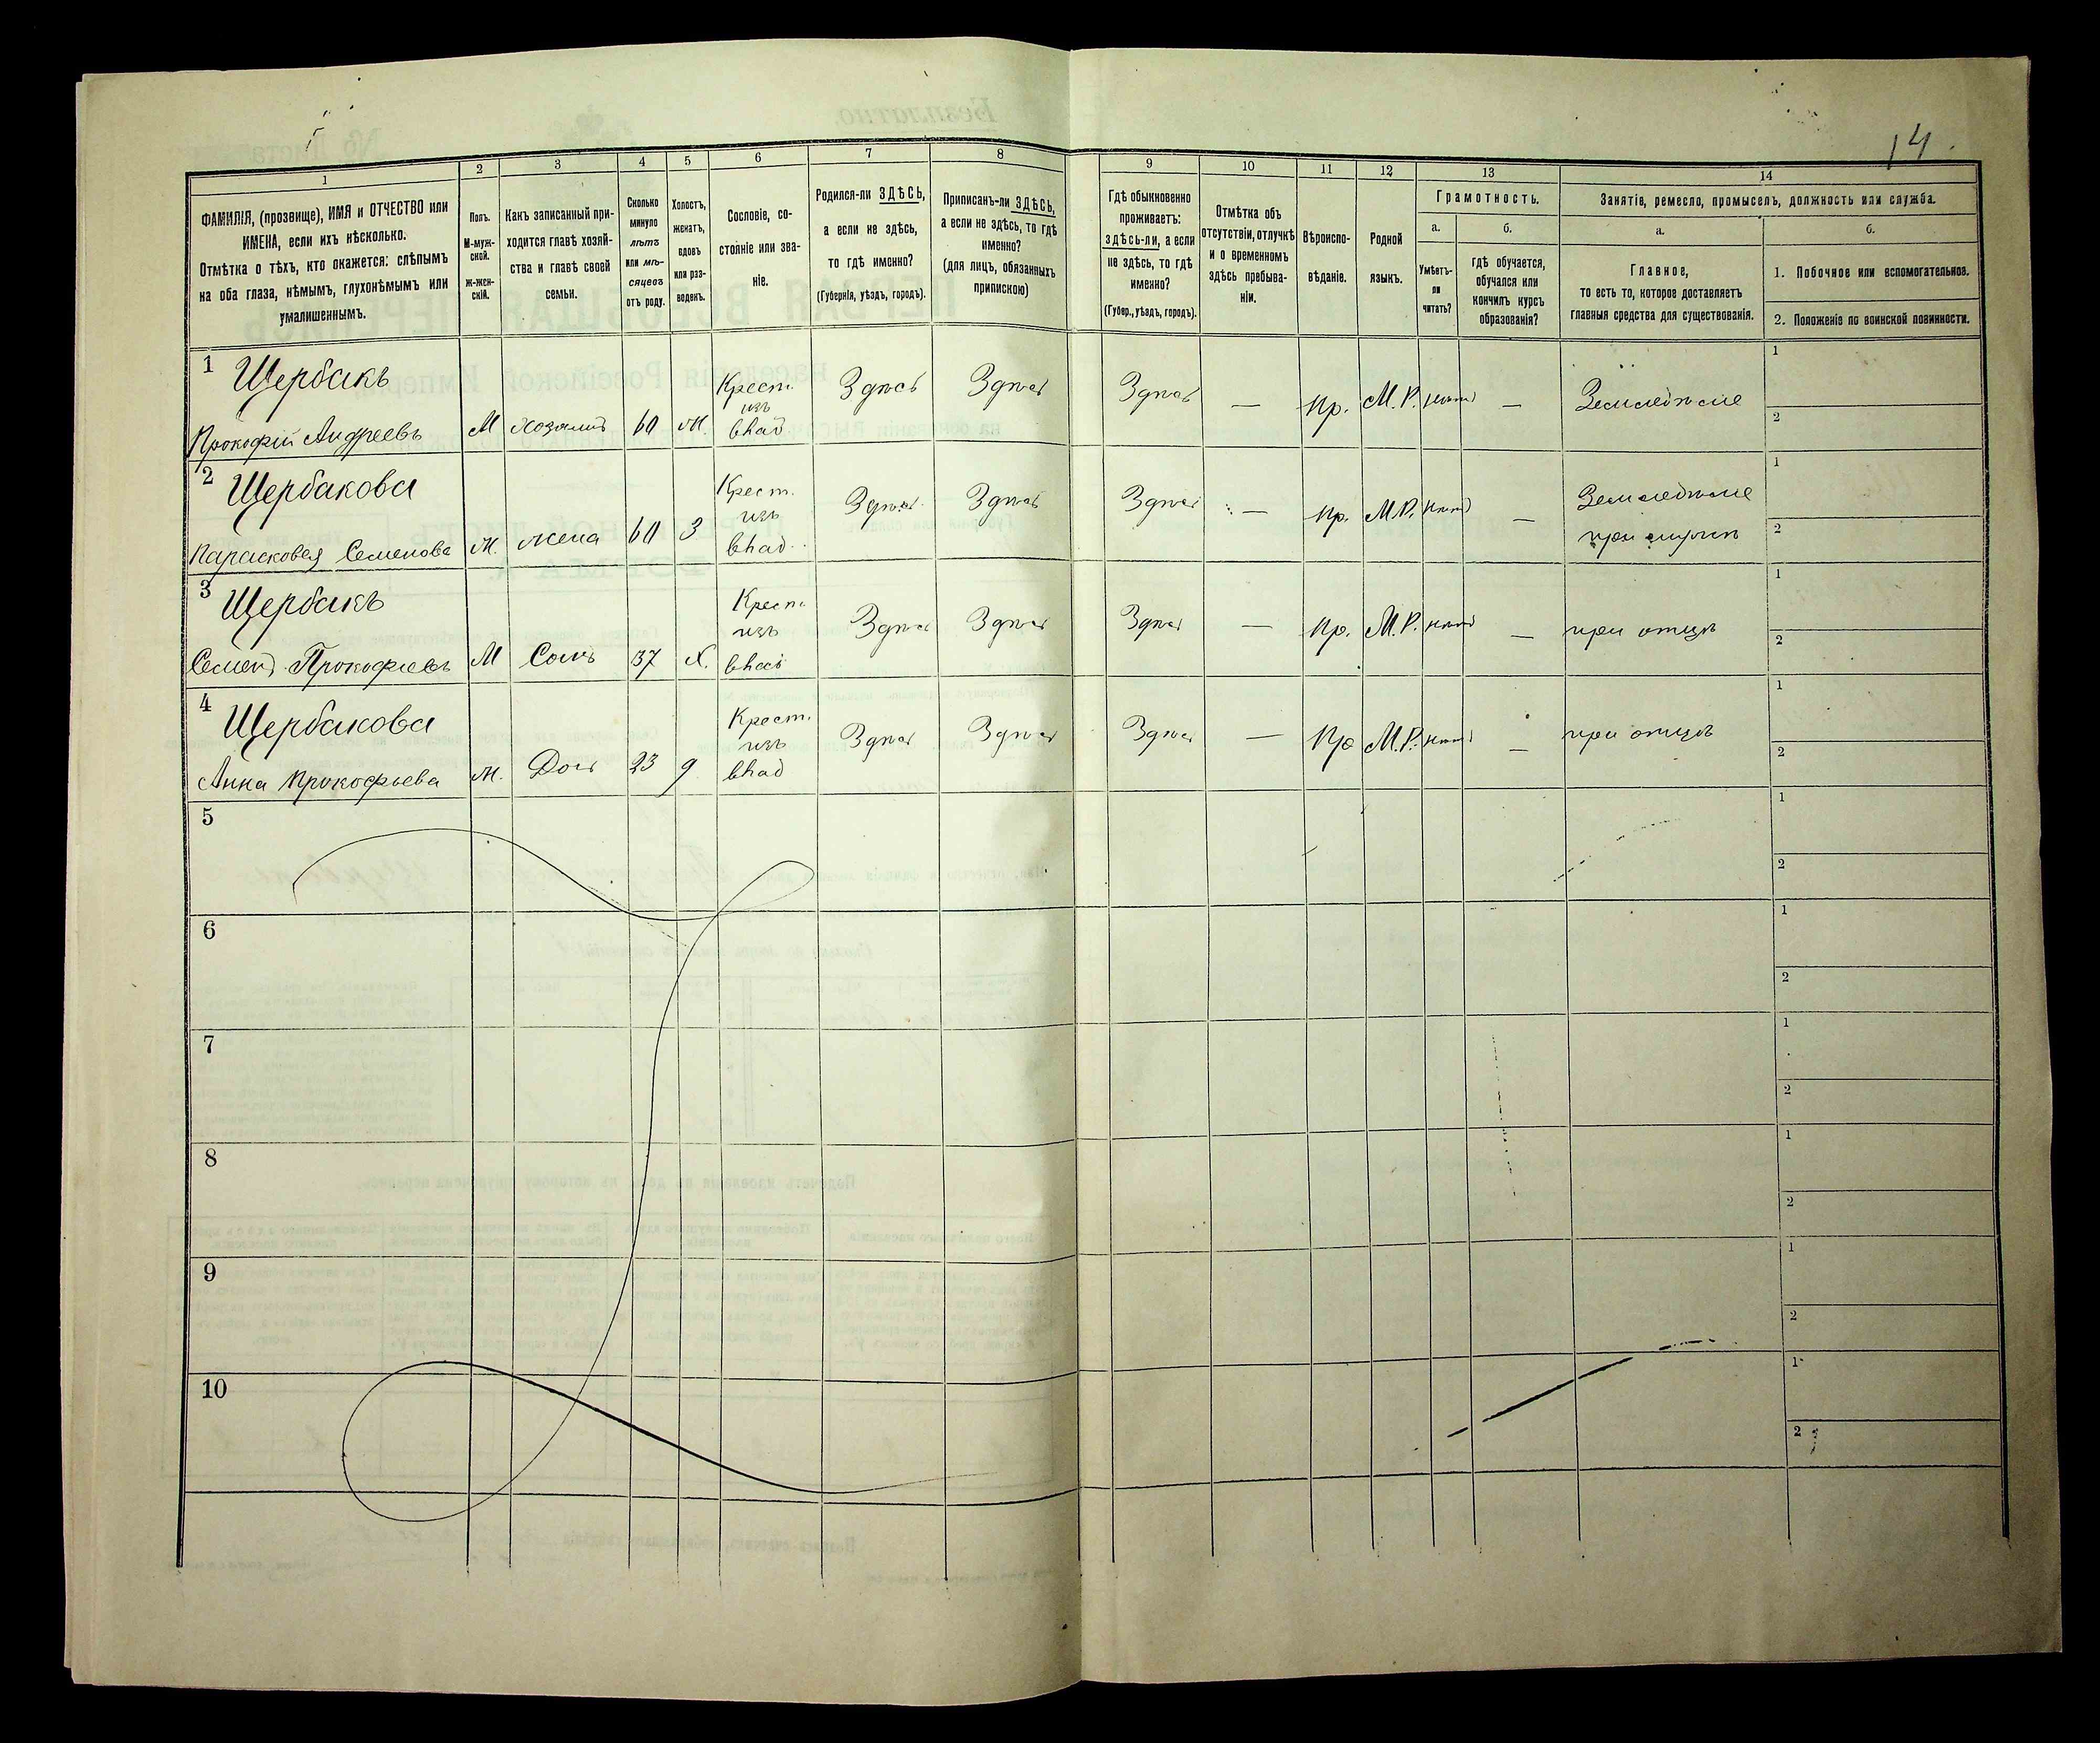 14.
1
2
3
4
5
6
7
8
9
10
11
12
13
14
ФАМИЛІЯ, (прозвище), ИМЯ и ОТЧЕСТВО или
ИМЕНА, если ихъ нѣсколько.
Отмѣтка о тѣхъ, кто окажется: слѣпымъ
на оба глаза, нѣмымъ, глухонѣмымъ или
умалишеннымъ.
Полъ.
М-муж-
ской.
Ж-жен-
скій.
Какъ записанный при-
ходится главѣ хозяй-
ства и главѣ своей
семьи.
Сколько
минуло
лѣтъ
или мѣ-
сяцевъ
отъ роду.
Холостъ,
женатъ,
вдовъ
или раз-
веденъ.
Сословіе, со-
стояніе или зва-
ніе.
Родился-ли ЗДѢСЬ,
а если не здѣсь,
то гдѣ именно?
(Губернія, уѣздъ, городъ).
Приписанъ-ли ЗДѢСЬ,
а если не здѣсь, то гдѣ
именно?
(для лицъ, обязанныхъ
припискою)
Гдѣ обыкновенно
проживаетъ:
здѣсь-ли, а если
не здѣсь, то гдѣ
именно?
(Губер., уѣздъ, городъ).
Отмѣтка объ
отсутствіи, отлучкѣ
и о временномъ
здѣсь пребыва-
ніи.
Вѣроиспо-
вѣданіе.
Родной
языкъ.
Грамотность.
а.
Умѣетъ-
ли
читать?
б.
гдѣ обучается,
обучался или
кончилъ курсъ
образованія?
Занятіе, ремесло, промыселъ, должность или служба.
а.
Главное,
то есть то, которое доставляетъ
главныя средства для существованія.
б.
1. Побочное или вспомогательное.
2. Положеніе по воинской повинности.
1 Щербакъ
Прокофій Андреевъ М Хозяинъ 60 Ж. Крест. из влад Здѣсь Здѣсь Здѣсь — Пр. М.Р. нѣтъ — Земледѣліе
1
2
2 Щербакова
Парасковея Семенова Ж. Жена 60 З Крест. изъ влад. Здѣсь Здѣсь Здѣсь — Пр. М.Р. нѣтъ — Земледѣліе
при мужѣ
1
2
3 Щербакъ
Семенъ Прокофіевъ М Сынъ 37 Х. Крест. изъ влад Здѣсь Здѣсь Здѣсь — Пр. М.Р. нѣтъ — при отцѣ
1
2
4 Щербакова
Анна Прокофьева Ж. Дочь 23 д Крест. изъ влад Здѣсь Здѣсь Здѣсь — Пр М.Р. нѣтъ — при отцѣ
1
2
5
1
2
6
1
2
7
1
2
8
1
2
9
1
2
10
1
2